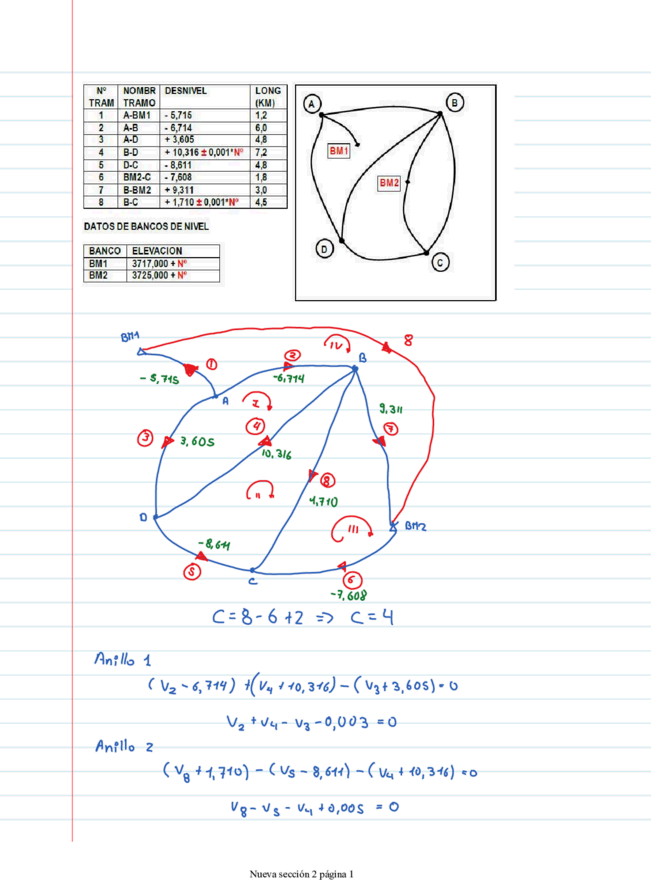 Nº NOMBR DESNIVEL LONG
TRAM TRAMO (KM)
1 A-BM1 - 5,715 1,2
2 A-B - 6,714 6,0
3 A-D + 3,605 4,8
4 B-D + 10,316 ± 0,001*Nº 7,2
5 D-C - 8,611 4,8
6 BM2-C - 7,608 1,8
7 B-BM2 + 9,311 3,0
8 B-C + 1,710 ± 0,001*Nº 4,5
A
B
BM1
BM2
D
C
DATOS DE BANCOS DE NIVEL
BANCO ELEVACION
BM1 3717,000 + Nº
BM2 3725,000 + Nº
BM1
8
IV
B
2
1
-5,715
-6,714
A
I
9,311
4
7
3
3,605
10,316
8
II
1,710
D
III
BM2
-8,611
5
C
6
-7,608
C = 8 - 6 + 2 => C = 4
Anillo 1
(V2 - 6,714) + (V4 + 10,316) - (V3 + 3,605) = 0
V2 + V4 - V3 - 0,003 = 0
Anillo 2
(V8 + 1,710) - (V5 - 8,611) - (V4 + 10,316) = 0
V8 - V5 - V4 + 0,005 = 0
Nueva sección 2 página 1